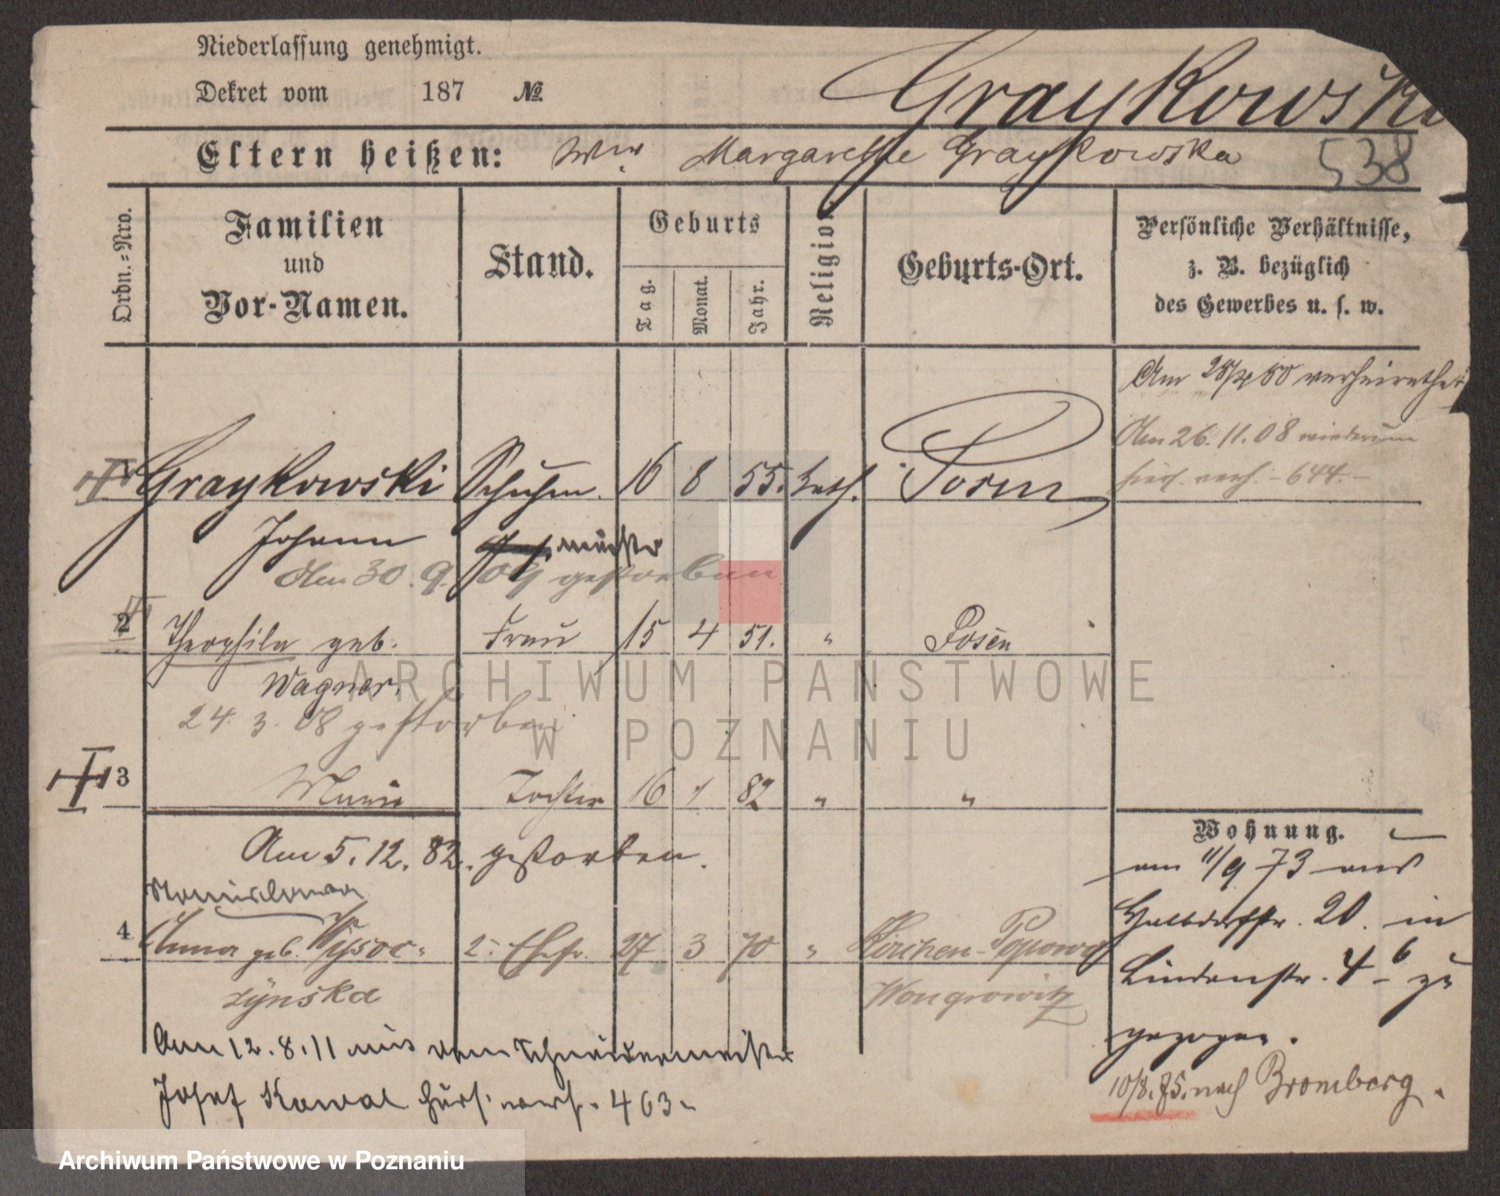 Niederlassung genehmigt.
Dekret vom 187 №
Graykowski
Eltern heißen: Wwe Margarethe Graykowska
538
Ordn.-Nro.
Familien
und
Vor-Namen.
Stand.
Geburts
Tag.
Monat.
Jahr.
Religion
Geburts-Ort.
Persönliche Verhältnisse,
z. B. bezüglich
des Gewerbes u. s. w.
Am verheirathet
Am 26.11.08 wiederum
hier verh. - 644.-
1 Graykowski Schuhm. 16 8 55. kath. Posen
Johann meister
Am 30.9. 09 gestorben
2 Theophila geb. Frau 15 4 51. " Posen
Wagner.
24.3.08 gestorben
3 Maria Tochter 16 1 82 " "
Am 5.12.82. gestorben.
Stanislawa
4 Anna geb. Wysoc- 2. Ehefr. 27 3 70 " Kirchen-Popowo
zynska Wongrowitz
Am 12.8.11 mit dem Schneidermeister
Josef Kowal hier verh. 463-
Wohnung.
am 11/9 73 aus
Halbdorfstr. 20. in
Lindenstr. 4-6 zu
gezogen.
10/8.75. nach Bromberg.
ARCHIWUM PAŃSTWOWE
W POZNANIU
Archiwum Państwowe w Poznaniu